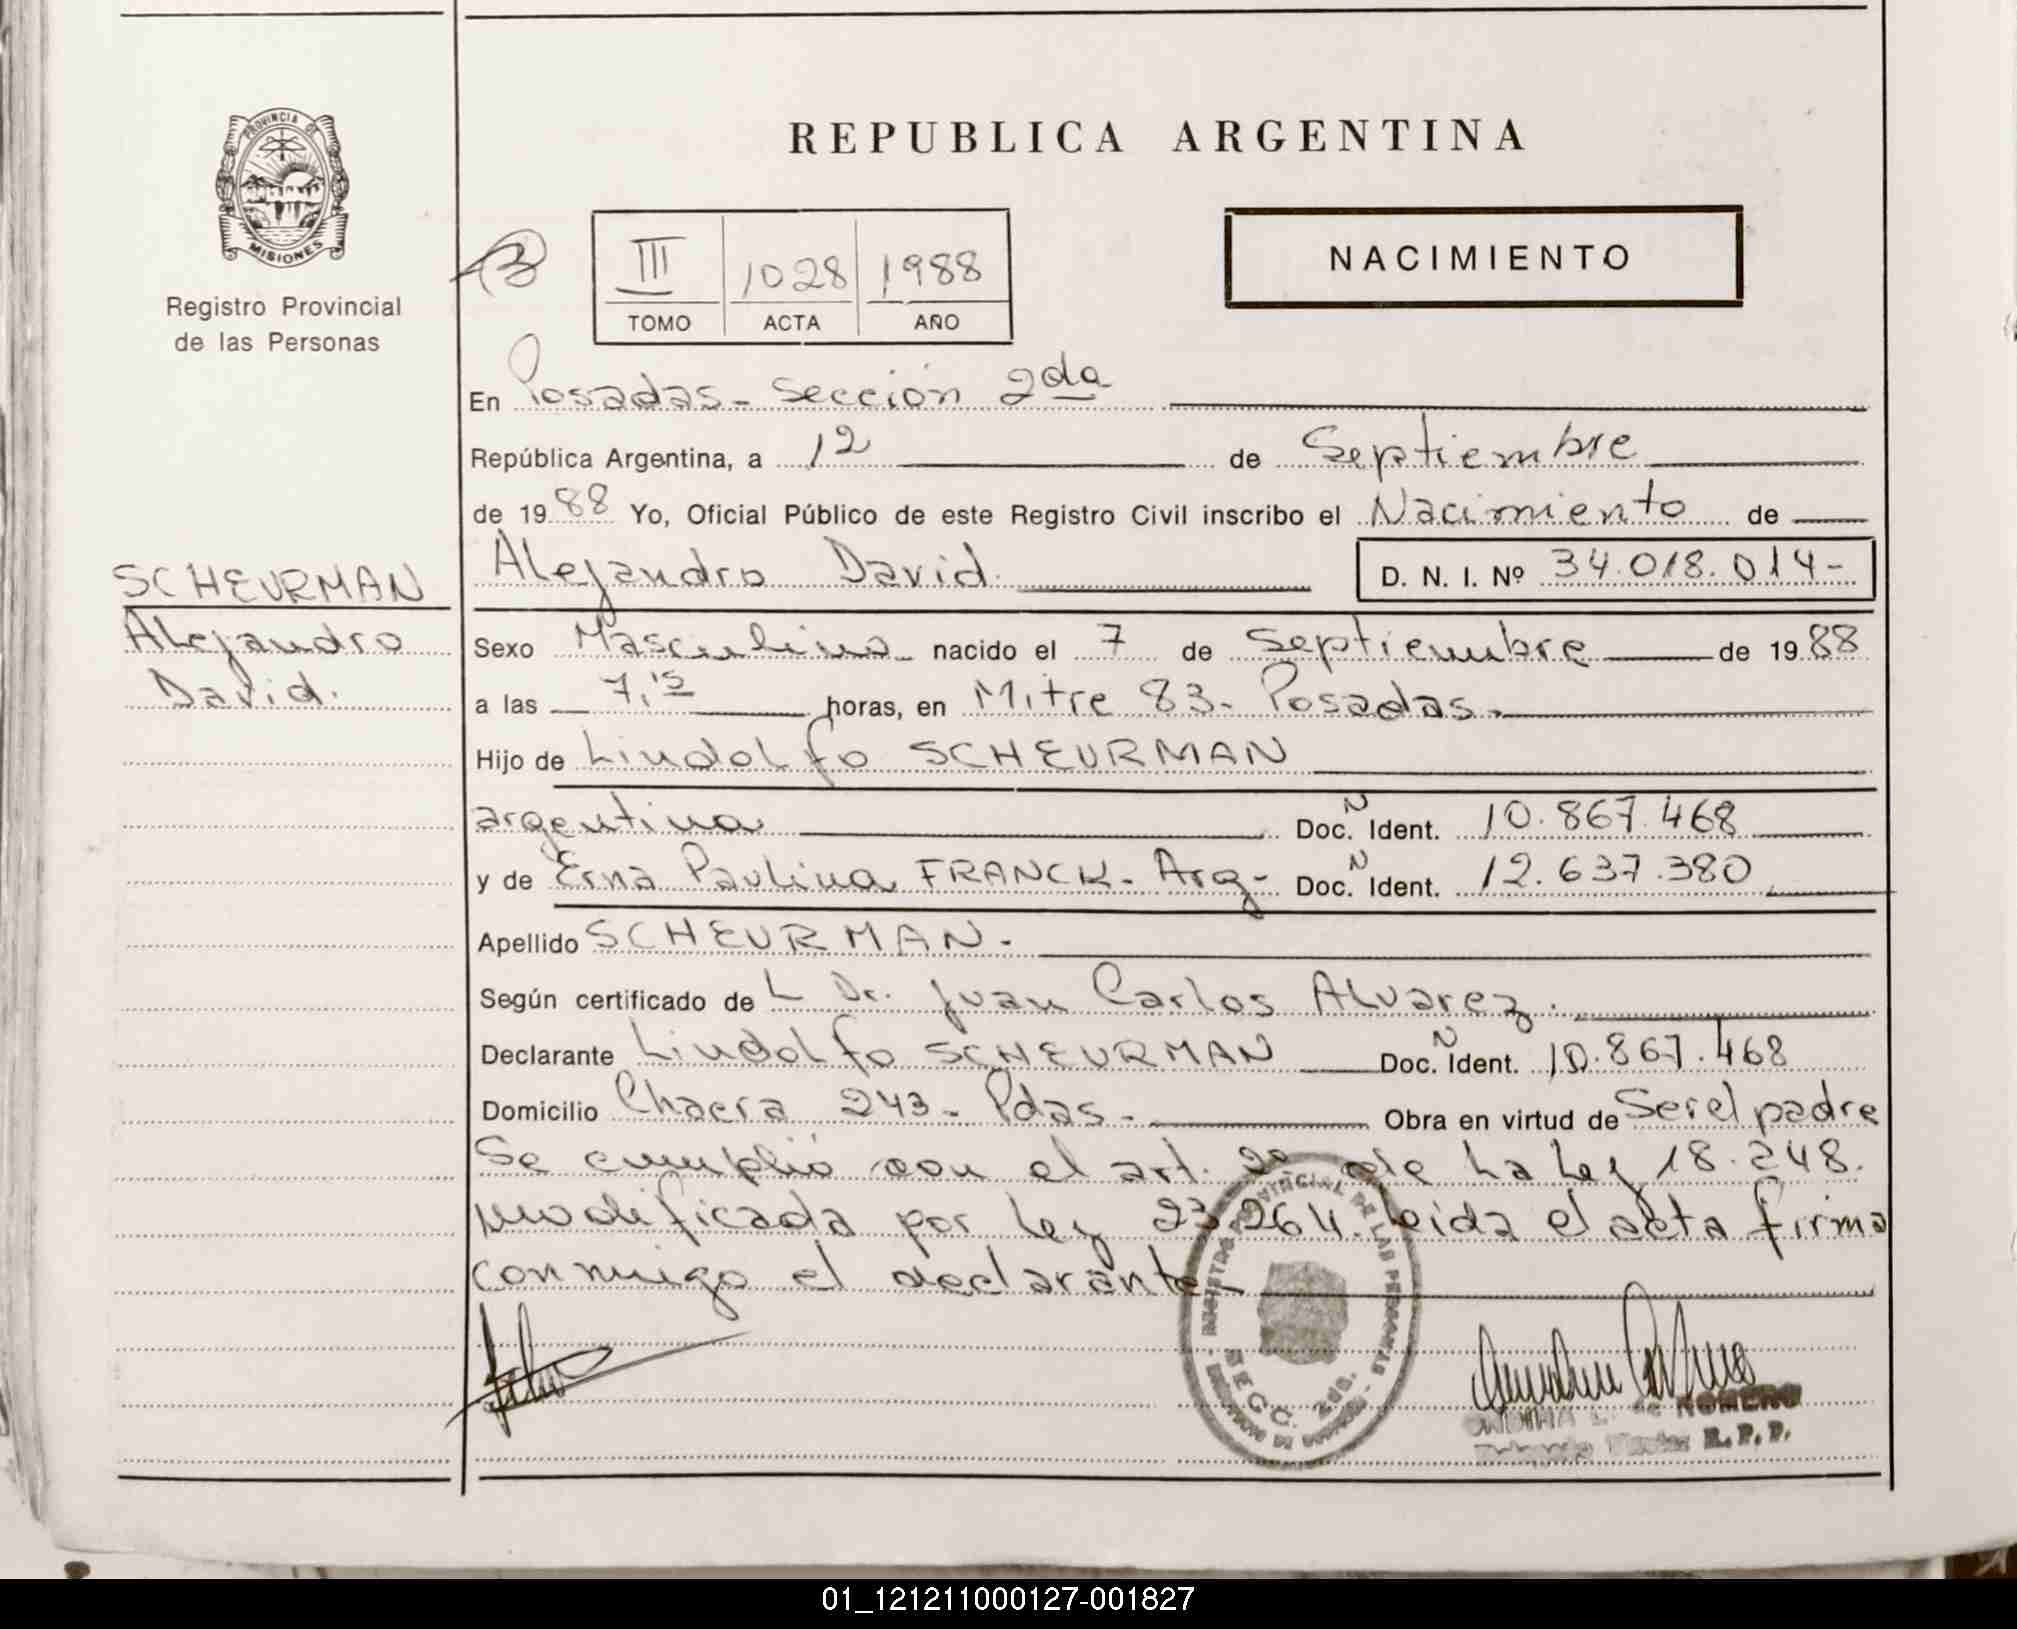 PROVINCIA DE
MISIONES
Registro Provincial
de las Personas
REPUBLICA ARGENTINA
III 1028 1988
TOMO ACTA AÑO
NACIMIENTO
En Posadas - Sección 2da
República Argentina, a 12 de Septiembre
de 1988 Yo, Oficial Público de este Registro Civil inscribo el Nacimiento de
Alejandro David D. N. I. Nº 34.018.014-
SCHEURMAN
Alejandro
David.
Sexo Masculino nacido el 7 de Septiembre de 1988
a las 7,15 horas, en Mitre 83- Posadas.
Hijo de Lindolfo SCHEURMAN
argentina Doc. N Ident. 10.867.468
y de Erna Paulina FRANCK- Arg- Doc. N Ident. 12.637.380
Apellido SCHEURMAN-
Según certificado de L Dr. Juan Carlos Alvarez.
Declarante Lindolfo SCHEURMAN Doc. N Ident. 10.867.468
Domicilio Chacra 243- Pdas- Obra en virtud de Ser el padre
Se cumplió con el art. 2º de La Ley 18.248.
modificada por Ley 23.264. Leida el acta firma
conmigo el declarante-
REGISTRO PROVINCIAL DE LAS PERSONAS
SECC. 2da.
L. de ROMERO
R. P. P.
01_121211000127-001827